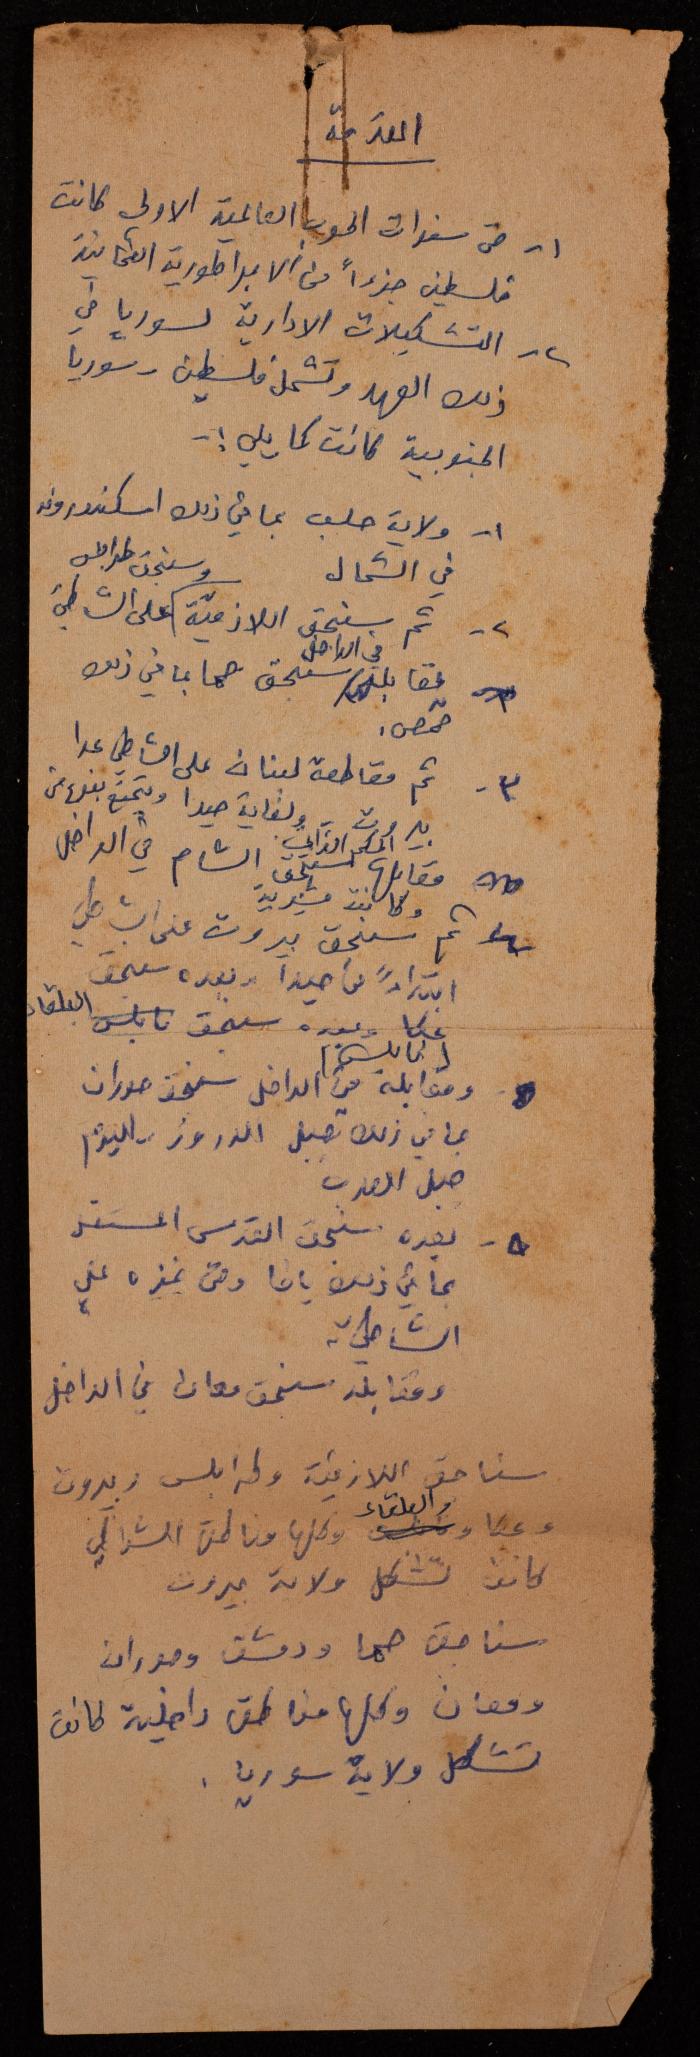 المقدمة
١- في سنوات الحرب العالمية الاولى كانت
فلسطين جزءاً من الامبراطورية العثمانية
٢- التشكيلات الادارية لسوريا في
ذلك العهد وتشمل فلسطين وسوريا
الجنوبية كانت كما يلي :-
١- ولاية حلب بما في ذلك اسكندرونه
في الشمال
وسنجق طرابلس
٢- ثم سنجق اللاذقية على الشاطئ
في الداخل
مقابله سنجق حما بما في ذلك
حمص .
٣- ثم مقاطعة لبنان على الشاطئ عدا
بيروت ولغاية صيدا ويتمتع بنوع من
الحكم الذاتي
مقابلها سنجق الشام في الداخل
وكانت
٤- ثم سنجق بيروت على الشاطئ
ابتداءً من صيدا وبعده سنجق
عكا وبعده سنجق نابلس البلقاء
(نابلس)
ومقابله في الداخل سنجق حوران
بما في ذلك جبل الدروز - اليوم
جبل العرب
٥- بعده سنجق القدس المستقل
بما في ذلك يافا وغزه على
الشاطئ
ومقابله سنجق معان في الداخل
سناجق اللاذقية وطرابلس وبيروت
والبلقاء
وعكا وكلها مناطق الشواطئ
كانت تشكل ولاية بيروت
سناجق حما ودمشق وحوران
ومعان وكلها مناطق داخلية كانت
تشكل ولاية سوريا .